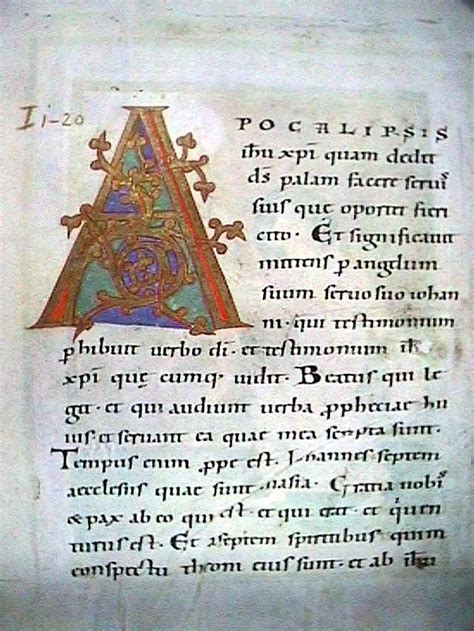 I i-20
APOCALIPSIS
ihu xpi quam dedit
ds palam facere servis
suis quę oportet fieri
cito · Et significavit
mittens p angelum
suum servo suo iohan
ni · qui testimonium
phibuit verbo di · et testimonium ihu
xpi quę cumq; vidit · Beatus qui le
git · et qui audiunt verba ppheciae hu
ius et servant ea quae in ea scripta sunt ·
Tempus enim ppe est · Iohannes septem
aecclesiis quae sunt in asia · Gratia vobis
& pax ab eo qui est · et qui erat · et qui ven
turus est · Et a septem spiritibus qui in
conspectu throni eius sunt · et ab ihu